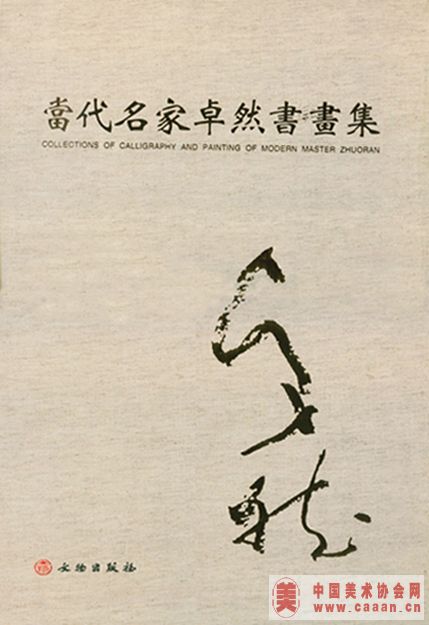 當代名家卓然書畫集
COLLECTIONS OF CALLIGRAPHY AND PAINTING OF MODERN MASTER ZHUORAN
文物出版社
美 中国美术协会网
www.caaan.cn